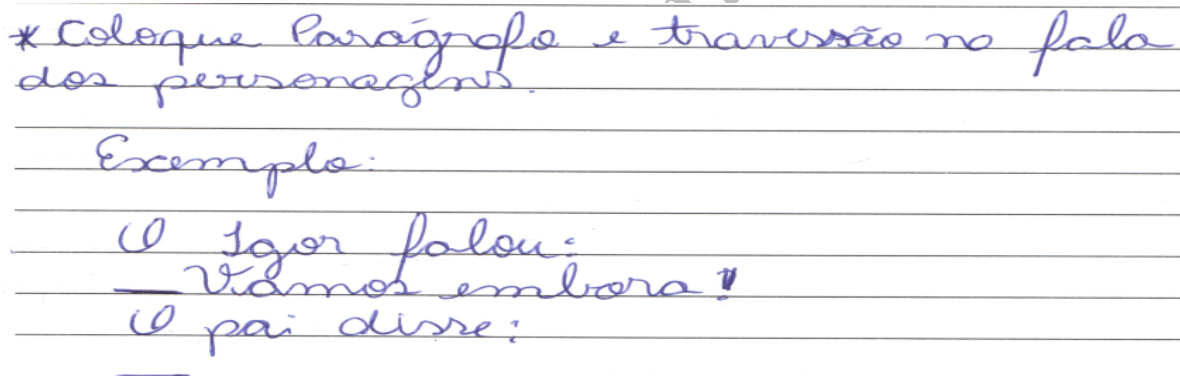 * Coloque Parágrafo e travessão na fala
dos personagens.
Exemplo:
O Igor falou:
— Vamos embora!
O pai disse:
—